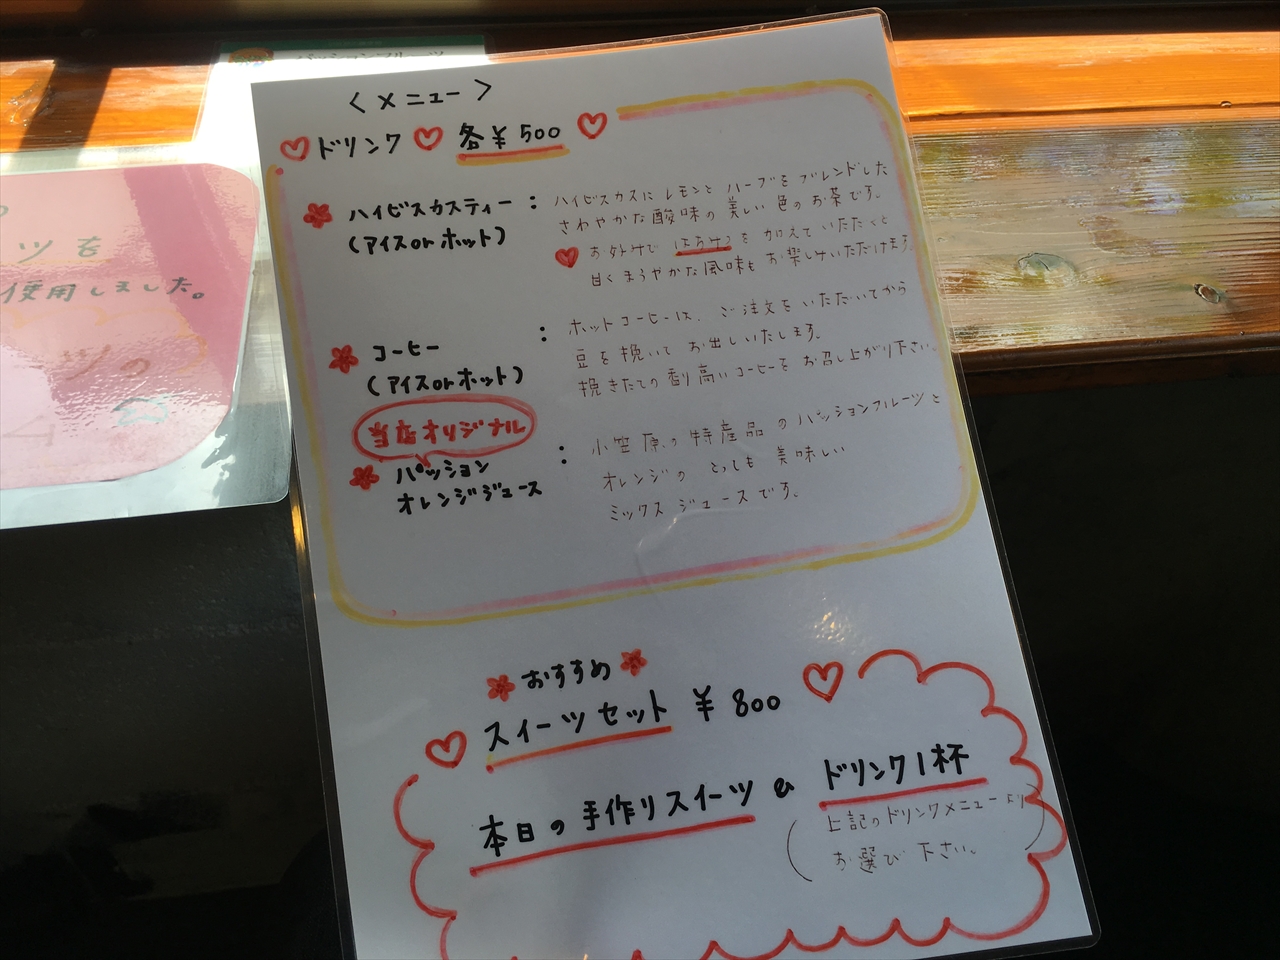 パッションフルーツ
ツを
使用しました。
ツの
〈メニュー〉
ドリンク 各¥500
ハイビスカスティー：
(アイスorホット)
ハイビスカスにレモンとハーブをブレンドした
さわやかな酸味の美しい色のお茶です。
お好みで はちみつを加えていただくと
甘くまろやかな風味もお楽しみいただけます
コーヒー：
(アイスorホット)
ホットコーヒーは、ご注文をいただいてから
豆を挽いてお出しいたします。
挽きたての香り高いコーヒーをお召し上がり下さい。
当店オリジナル
パッション：
オレンジジュース
小笠原の特産品のパッションフルーツと
オレンジのとっても美味しい
ミックスジュースです。
おすすめ
スイーツセット ¥800
本日の手作りスイーツ & ドリンク1杯
(上記のドリンクメニューより
お選び下さい。)